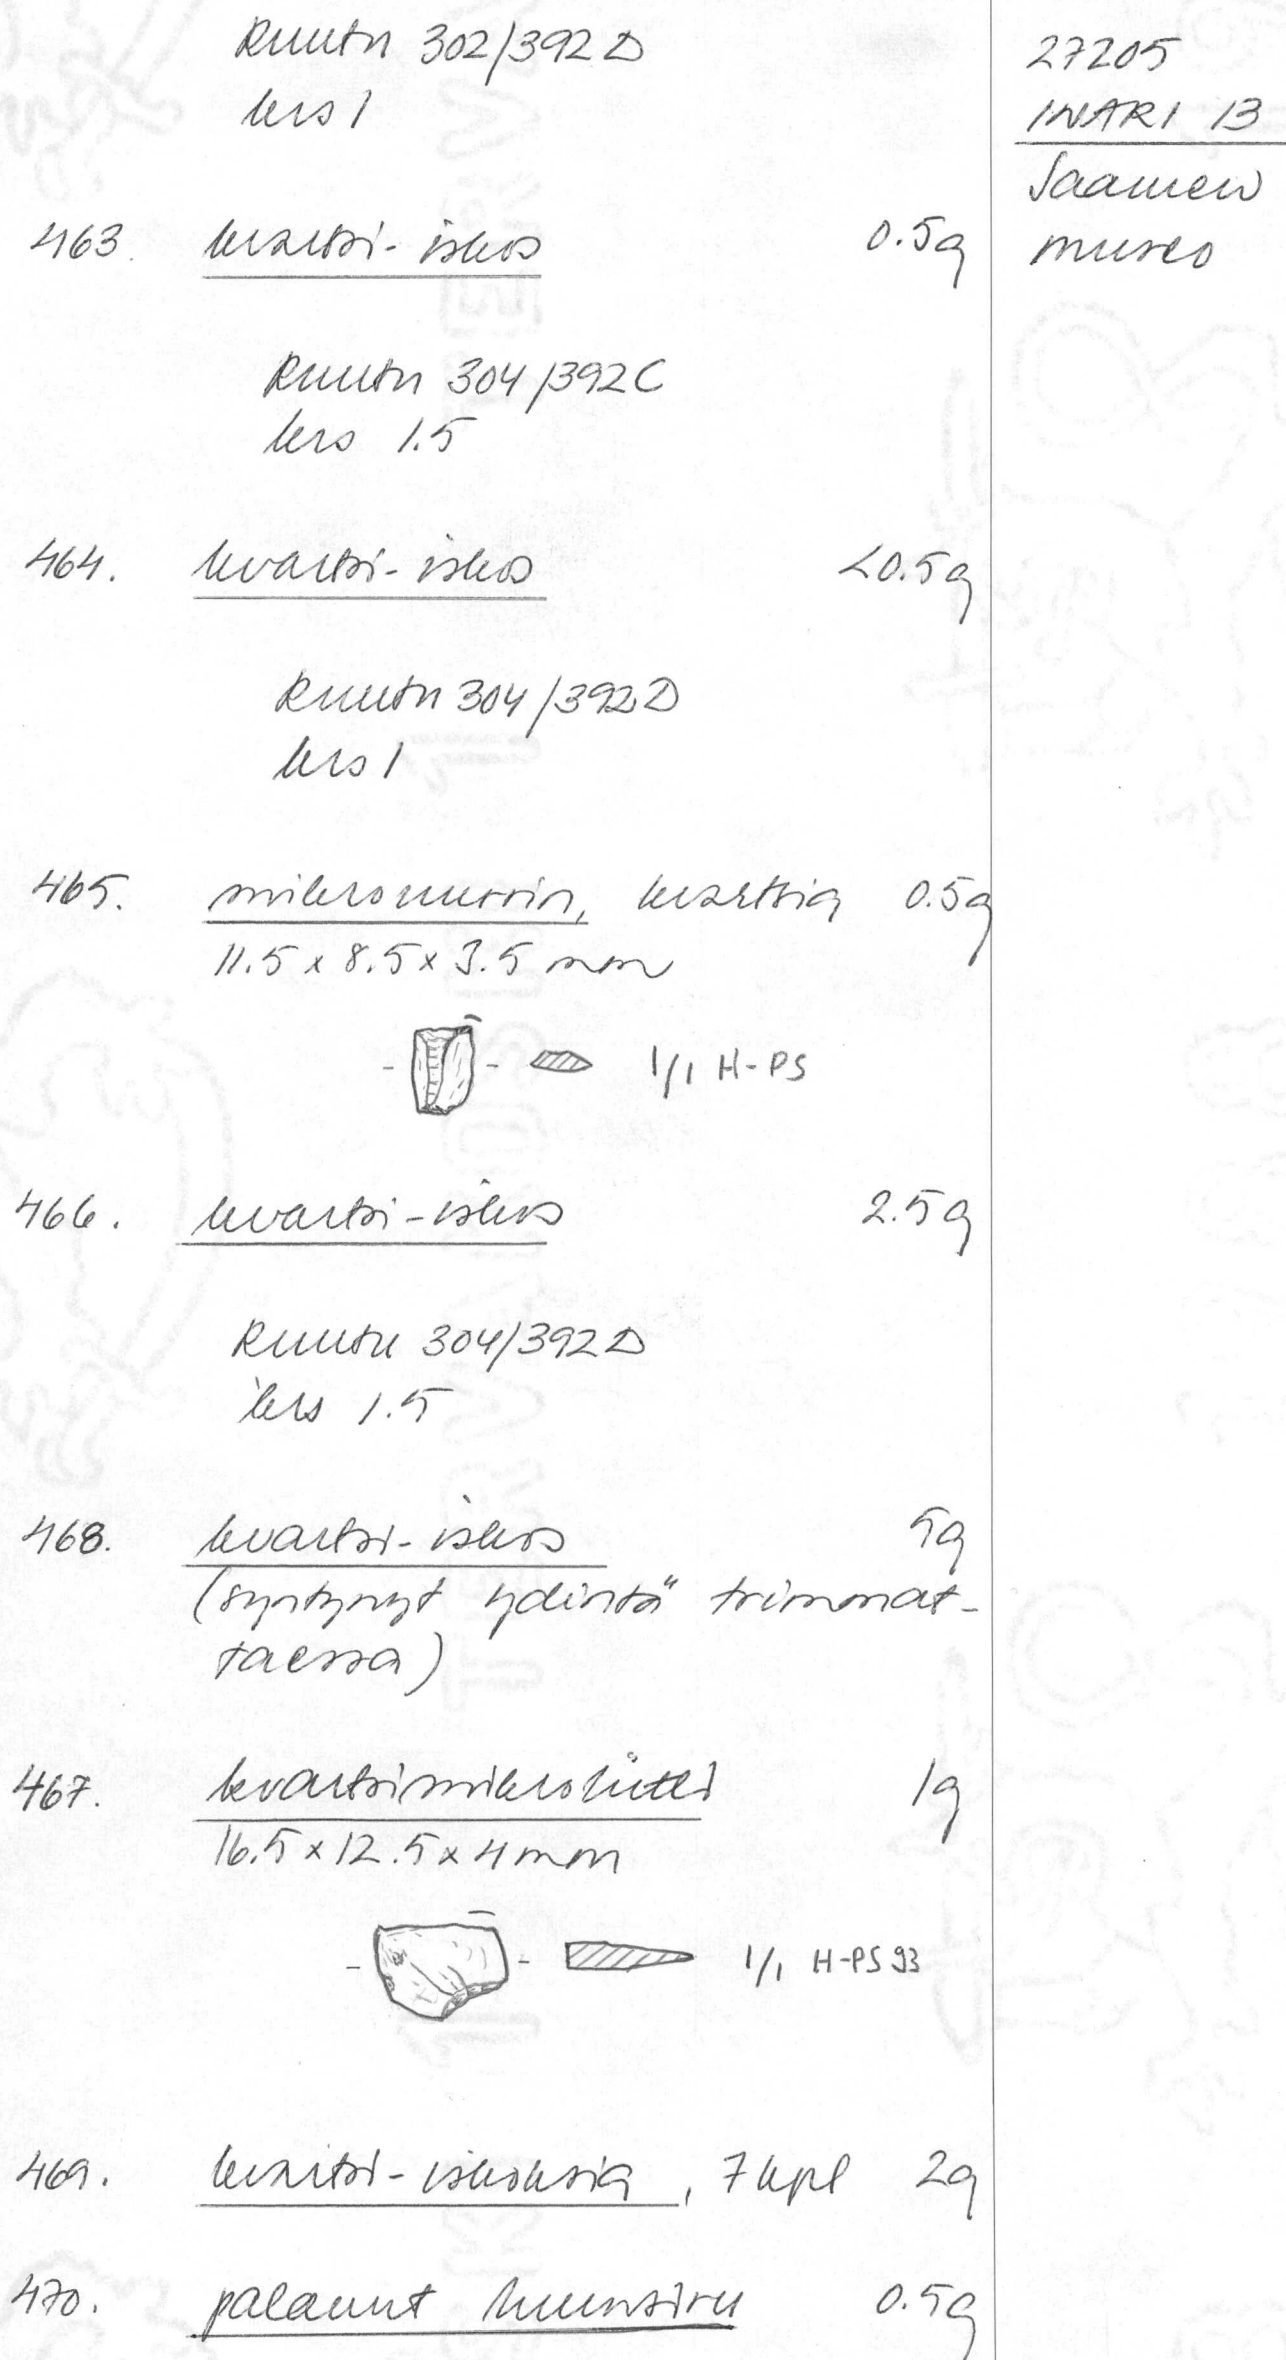 Ruutu 302/392 D
krs 1
27205
INARI 13
Saamen
museo
463. kvartsi-iskos 0.5g
Ruutu 304/392 C
krs 1.5
464. kvartsi-iskos <0.5g
Ruutu 304/392 D
krs 1
465. mikrouurrin, kvartsia 0.5g
11.5 x 8.5 x 3.5 mm
1/1 H-PS
466. kvartsi-iskos 2.5g
Ruutu 304/392 D
krs 1.5
468. kvartsi-iskos 5g
(syntynyt ydintä trimmat-
taessa)
467. kvartsimikroliitti 1g
16.5 x 12.5 x 4 mm
1/1 H-PS 93
469. kvartsi-iskoksia, 7 kpl 2g
470. palanut luunsiru 0.5g